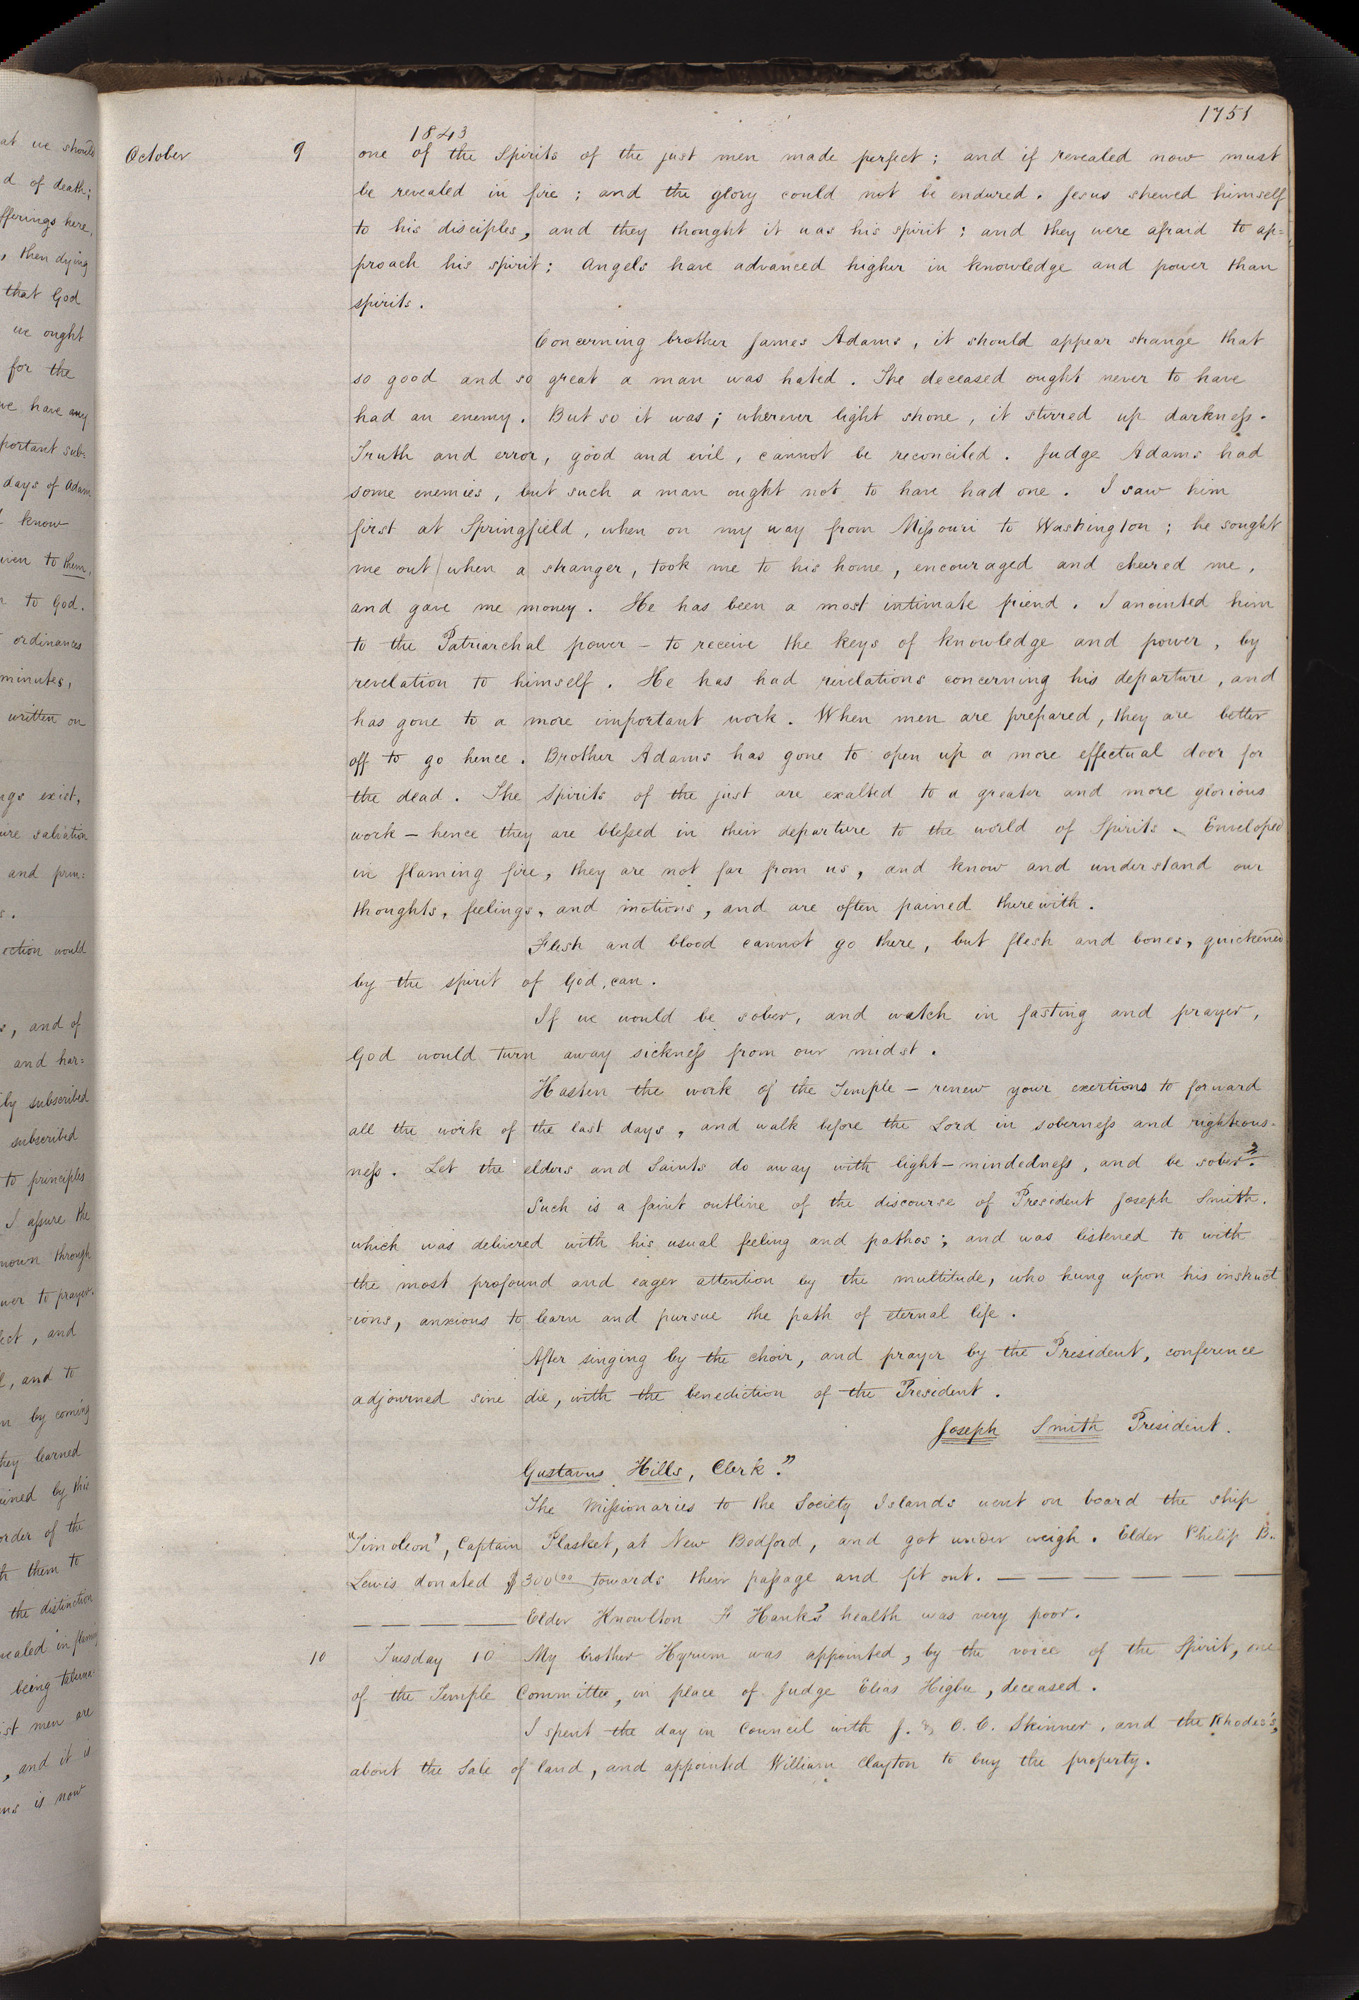 1751
1843
October 9 one of the Spirits of the just men made perfect; and if revealed now must
be revealed in fire; and the glory could not be endured. Jesus shewed himself
to his disciples, and they thought it was his spirit; and they were afraid to ap=
proach his spirit; Angels have advanced higher in knowledge and power than
spirits.
Concerning brother James Adams, it should appear strange that
so good and so great a man was hated. The deceased ought never to have
had an enemy. But so it was; wherever light shone, it stirred up darkness.
Truth and error, good and evil, cannot be reconciled. Judge Adams had
some enemies, but such a man ought not to have had one. I saw him
first at Springfield, when on my way from Missouri to Washington; he sought
me out when a stranger, took me to his home, encouraged and cheered me,
and gave me money. He has been a most intimate friend. I anointed him
to the Patriarchal power – to receive the keys of knowledge and power, by
revelation to himself. He has had revelations concerning his departure, and
has gone to a more important work. When men are prepared, they are better
off to go hence. Brother Adams has gone to open up a more effectual door for
the dead. The Spirits of the just are exalted to a greater and more glorious
work – hence they are blessed in their departure to the world of Spirits. Enveloped
in flaming fire, they are not far from us, and know and understand our
thoughts, feelings, and motions, and are often pained therewith.
Flesh and blood cannot go there, but flesh and bones, quickened
by the spirit of God, can.
If we would be sober, and watch in fasting and prayer,
God would turn away sickness from our midst.
Hasten the work of the Temple – renew your exertions to forward
all the work of the last days, and walk before the Lord in soberness and righteous-
ness. Let the elders and Saints do away with light-mindedness, and be sober."
Such is a faint outline of the discourse of President Joseph Smith.
which was delivered with his usual feeling and pathos; and was listened to with
the most profound and eager attention by the multitude, who hung upon his instruct
ions, anxious to learn and pursue the path of eternal life.
After singing by the choir, and prayer by the President, conference
adjourned sine die, with the benediction of the President.
Joseph Smith President.
Gustavus Hills, Clerk."
The Missionaries to the Society Islands went on board the ship
"Timoleon", Captain Plasket, at New Bedford, and got under weigh. Elder Philip B.
Lewis donated $300⁰⁰ towards their passage and fit out. —
— Elder Knowlton F Hanks' health was very poor.
10 Tuesday 10 My brother Hyrum was appointed, by the voice of the Spirit, one
of the Temple Committee, in place of Judge Elias Higbee, deceased.
I spent the day in Council with J. & O. C. Skinner, and the Rhodes's,
about the Sale of land, and appointed William Clayton to buy the property.